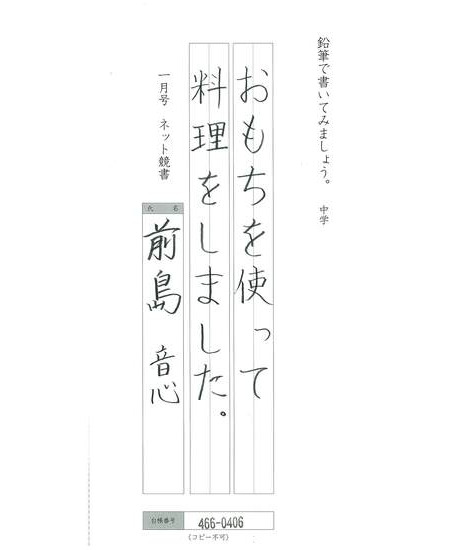 鉛筆で書いてみましょう。 中学
おもちを使って
料理をしました。
一月号 ネット競書
氏名
前島 音心
台帳番号 466-0406
(コピー不可)